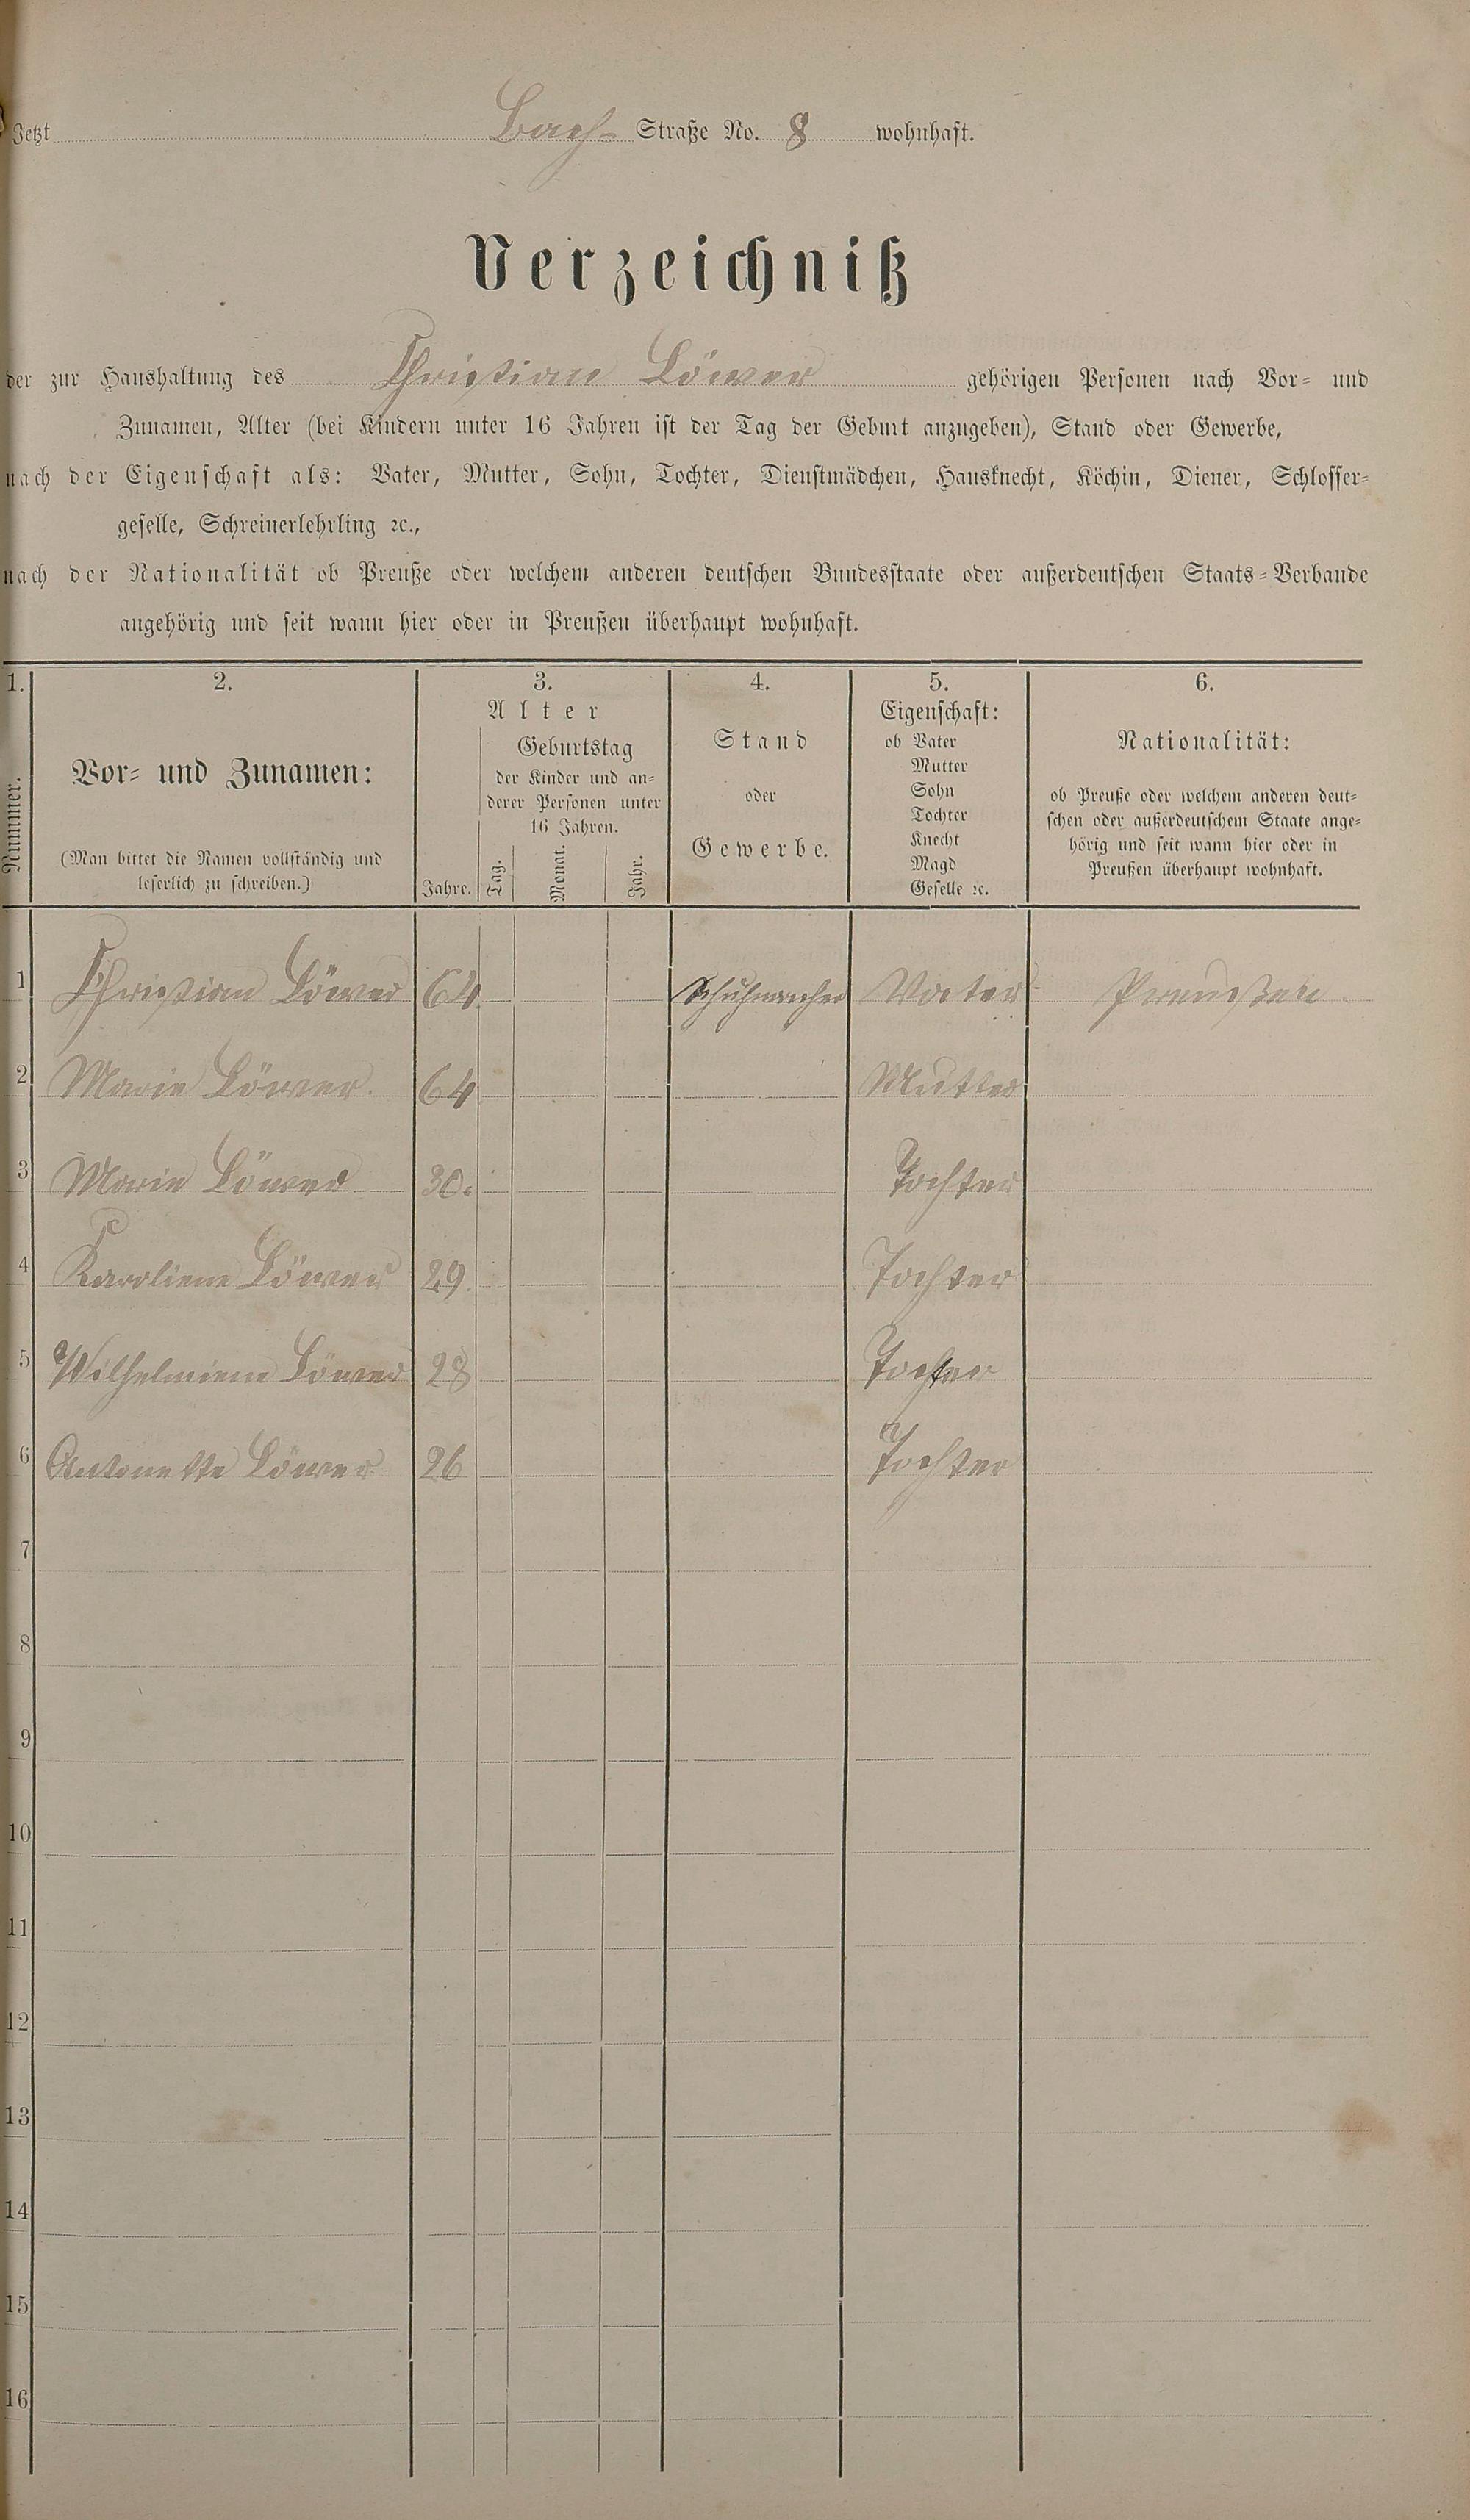 Jetzt Bach- Straße No. 8 wohnhaft.
Verzeichniß
der zur Haushaltung des Christian Löwer gehörigen Personen nach Vor- und
Zunamen, Alter (bei Kindern unter 16 Jahren ist der Tag der Geburt anzugeben), Stand oder Gewerbe,
nach der Eigenschaft als: Vater, Mutter, Sohn, Tochter, Dienstmädchen, Hausknecht, Köchin, Diener, Schlosser-
geselle, Schreinerlehrling ꝛc.,
nach der Nationalität ob Preuße oder welchem anderen deutschen Bundesstaate oder außerdeutschen Staats-Verbande
angehörig und seit wann hier oder in Preußen überhaupt wohnhaft.
1. 2. 3. 4. 5. 6.
Nummer.
Vor- und Zunamen:
(Man bittet die Namen vollständig und
leserlich zu schreiben.)
Alter
Jahre.
Geburtstag
der Kinder und an-
derer Personen unter
16 Jahren.
Tag. Monat. Jahr.
Stand
oder
Gewerbe.
Eigenschaft:
ob Vater
Mutter
Sohn
Tochter
Knecht
Magd
Geselle ꝛc.
Nationalität:
ob Preuße oder welchem anderen deut-
schen oder außerdeutschem Staate ange-
hörig und seit wann hier oder in
Preußen überhaupt wohnhaft.
1 Christian Löwer 64 Schuhmacher Vater Preußen.
2 Marie Löwer. 64 Mutter
3 Marie Löwer 30. Tochter
4 Karoliene Löwer 29. Tochter
5 Wilhelmiene Löwer 28 Tochter
6 Antonette Löwer 26 Tochter
7
8
9
10
11
12
13
14
15
16